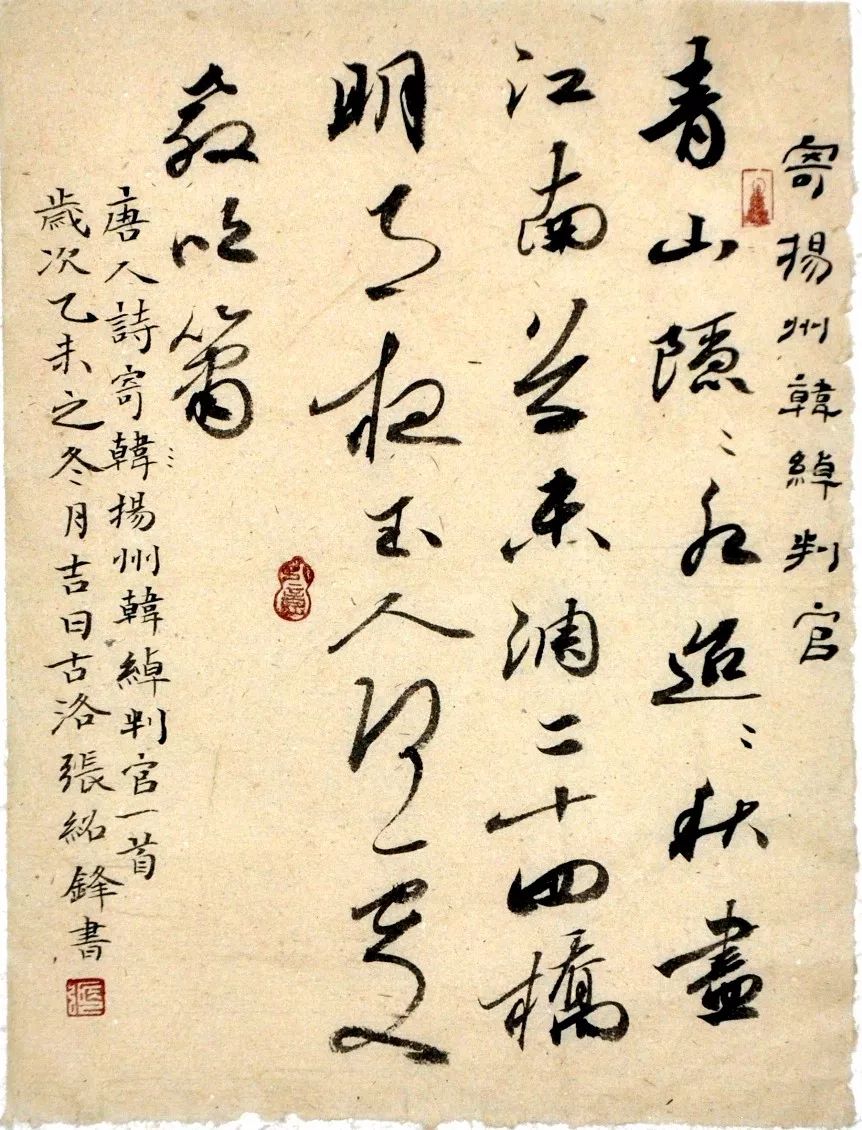 寄揚州韓綽判官
青山隱〻水迢〻秋盡
江南草未凋二十四橋
明月夜玉人何處
教吹簫
唐人詩寄韓揚州韓綽判官一首
歲次乙未之冬月吉日古洛張紹鋒書